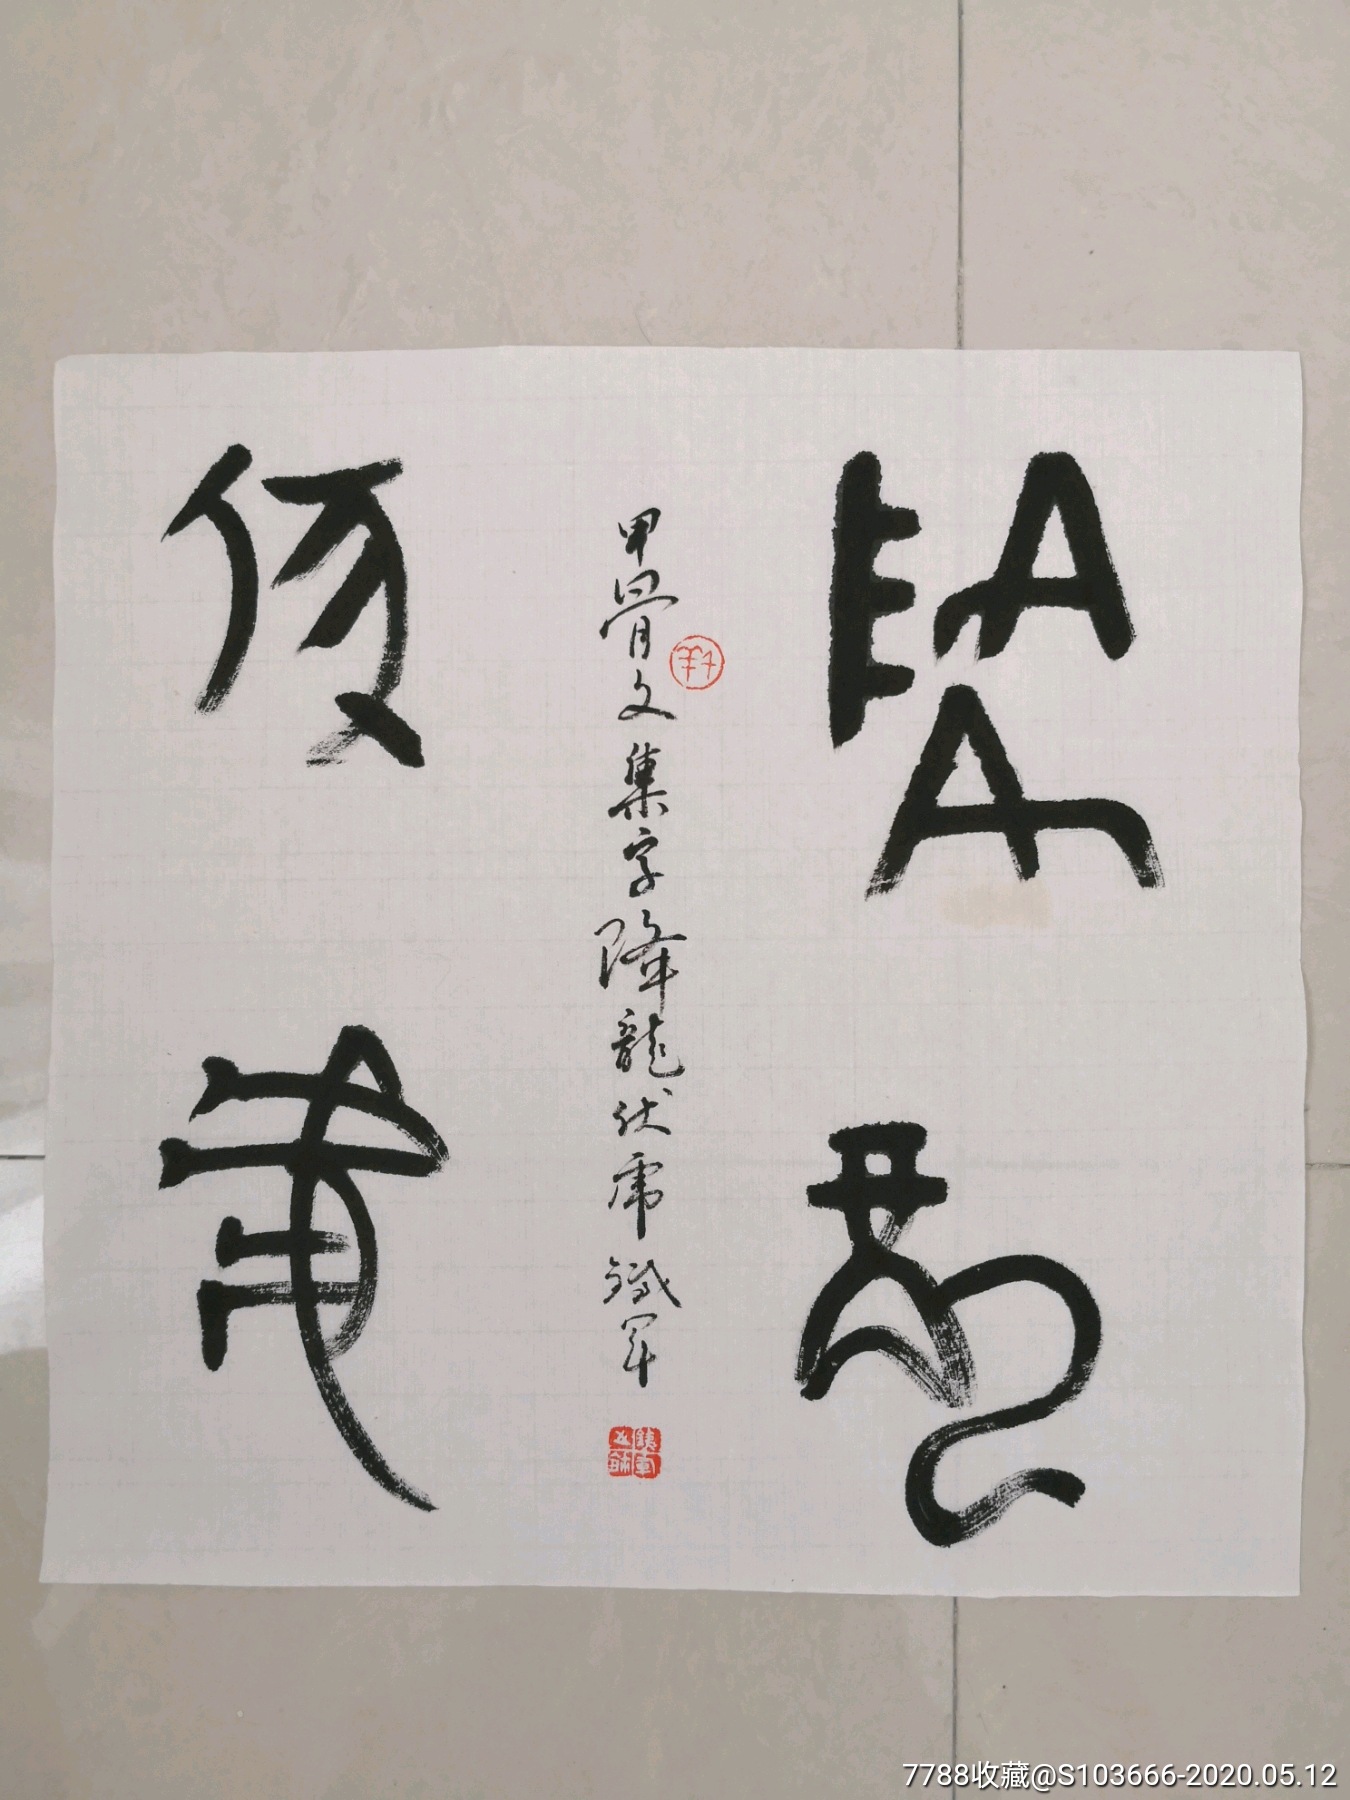 降龍
甲骨文集字降龍伏虎鐵軍
伏虎
7788收藏@S103666-2020.05.12